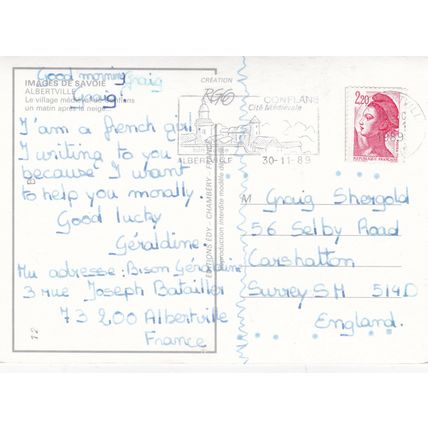 Good morning Graig
IMAGES DE SAVOIE
Graig!
ALBERTVILLE
Le village médiéval de Conflans
un matin après la neige
I'am a french girl.
I writing to you
because I want
to help you morally.
Good lucky
Géraldine.
Mu adresse: Bison Géraldine
3 rue Joseph Batailler
73 200 Albertville
France
12
CRÉATION
RGO
EDITIONS EDY - CHAMBÉRY - FRANCE
Reproduction interdite modèle déposé
CONFLANS
Cité Médiévale
ALBERTVILLE
30-11-89
2,20
REPUBLIQUE FRANÇAISE
M Graig Shergold
56 Selby Road
Carshalton
Surrey SM 514D
England.